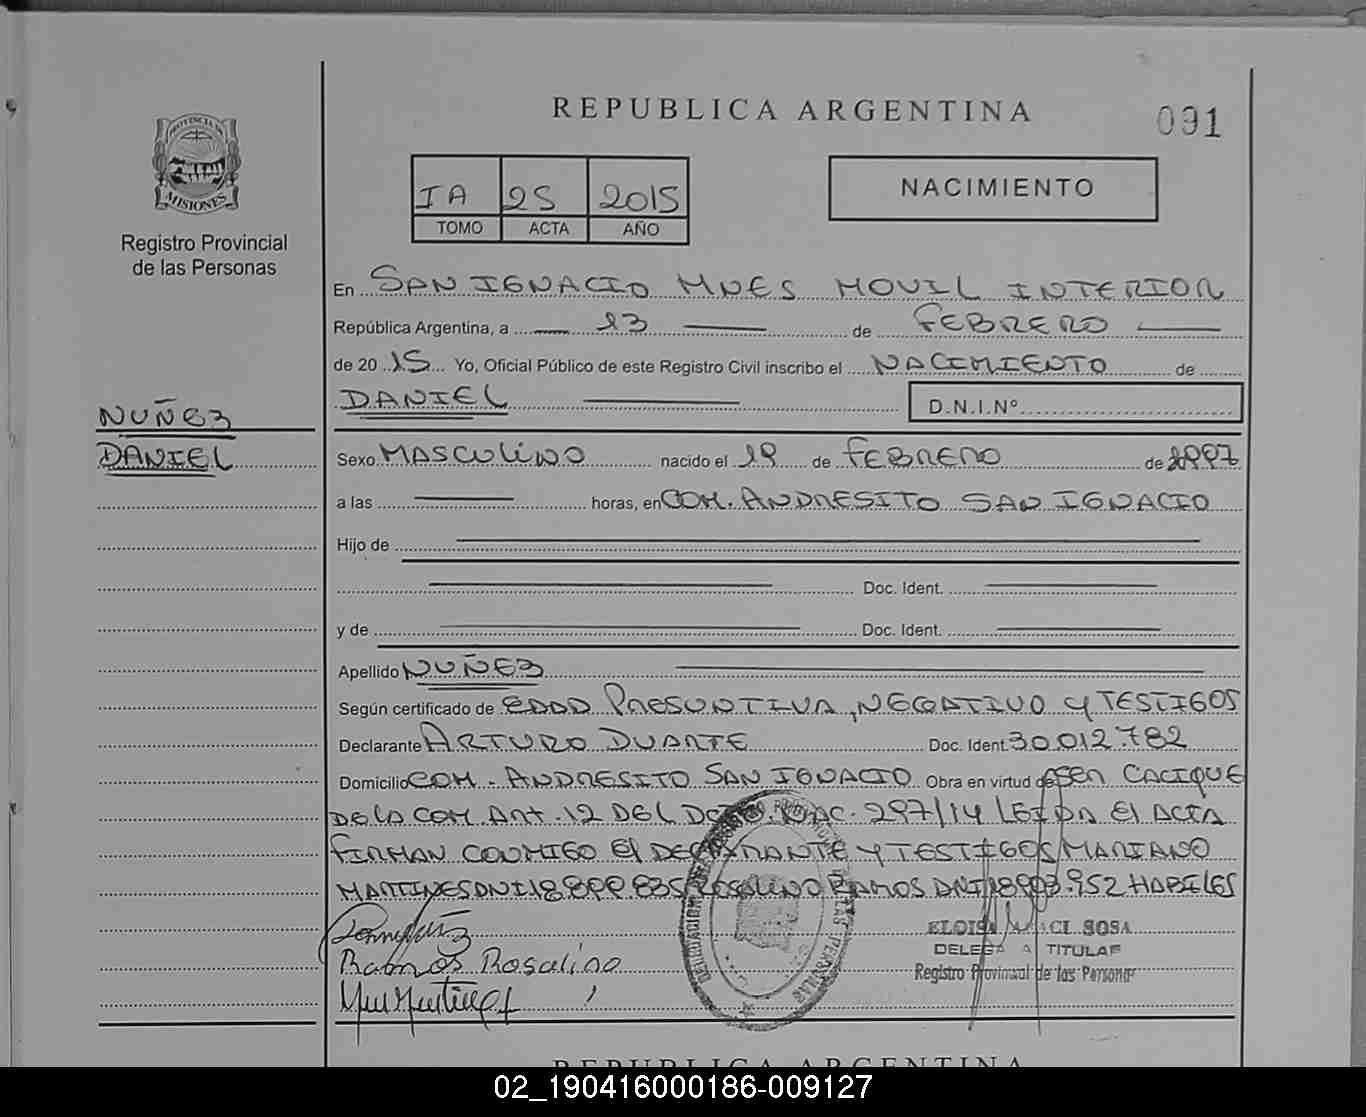 REPUBLICA ARGENTINA
091
PROVINCIA DE
MISIONES
Registro Provincial
de las Personas
IA 25 2015
TOMO ACTA AÑO
NACIMIENTO
En SAN IGNACIO MNES MOVIL INTERIOR
República Argentina, a 13 de FEBRERO
de 2015 Yo, Oficial Público de este Registro Civil inscribo el NACIMIENTO de
DANIEL D.N.I.Nº
NUÑEZ
DANIEL
Sexo MASCULINO nacido el 19 de FEBRERO de 1997
a las horas, en COM. ANDRESITO SAN IGNACIO
Hijo de
Doc. Ident.
y de Doc. Ident.
Apellido NUÑEZ
Según certificado de EDAD PRESUNTIVA, NEGATIVO Y TESTIGOS
Declarante ARTURO DUARTE Doc. Ident. 30.012.782
Domicilio COM. ANDRESITO SAN IGNACIO Obra en virtud de SER CACIQUE
DE LA COM. Art. 12 DEL NAC. 297/14 LEIDA El ACTA
FIRMAN CONMIGO El DECLARANTE Y TESTIGOS MARIANO
MARTINES DNI 18.899.835 ROSALINO RAMOS DNI 18.903.952 HABILES
Ramos Rosalino
ELOISA SOSA
DELEGADA TITULAR
Registro Provincial de las Personas
REPUBLICA ARGENTINA
02_190416000186-009127